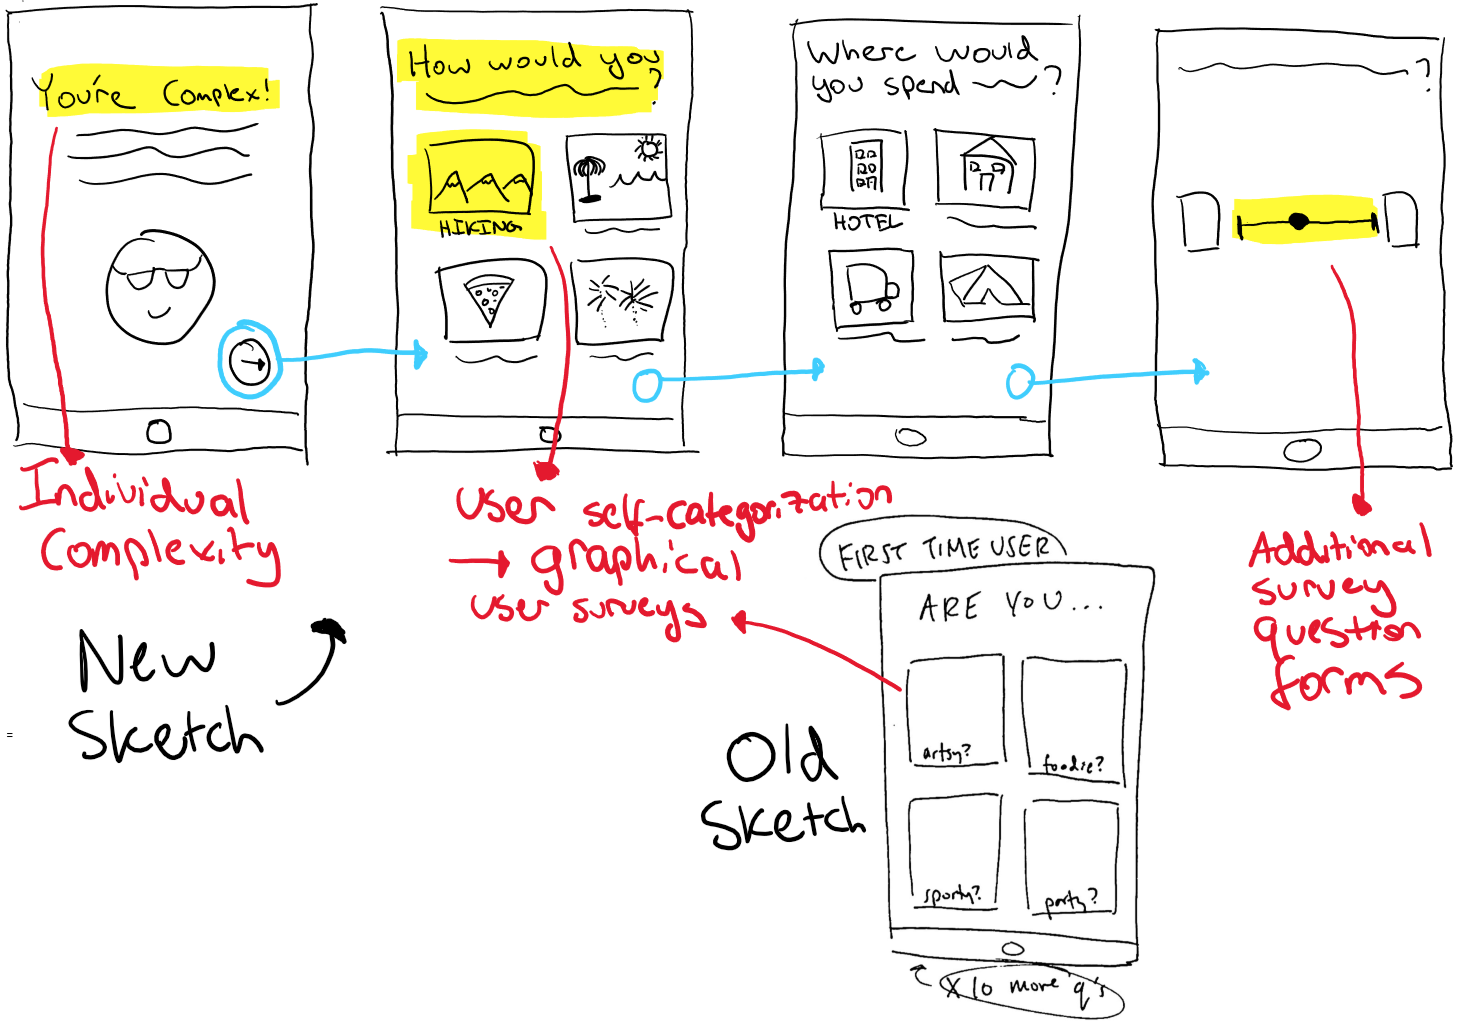 You're Complex!
How would you
?
HIKING
Where would
you spend ?
HOTEL
?
Individual
Complexity
User self-categorization
→ graphical
user surveys
Additional
survey
question
forms
New
Sketch
Old
Sketch
FIRST TIME USER
ARE YOU...
artsy?
foodie?
sporty?
party?
x 10 more q's
=